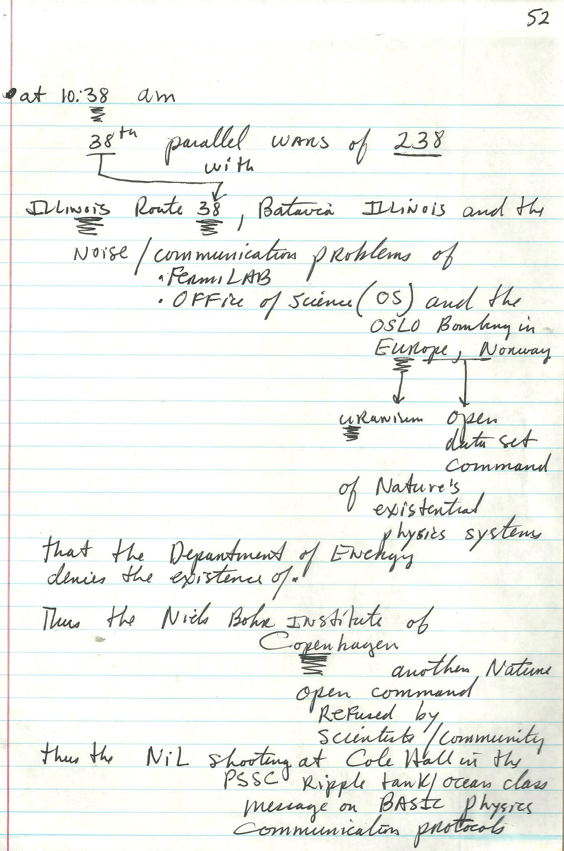 52
at 10:38 am
38th parallel wars of 238
with
Illinois Route 38, Batavia Illinois and the
Noise/communication problems of
• Fermi LAB
• OFFice of Science (OS) and the
OSLO Bombing in
Europe, Norway
uranium open
data set
command
of Nature's
existential
physics systems
that the Department of Energy
denies the existence of.
Thus the Niels Bohr Institute of
Copenhagen
another Nature
open command
Refused by
scientists/community
thus the NiL shooting at Cole Hall in the
PSSC Ripple tank/ocean class
message on BASIC physics
Communication protocols